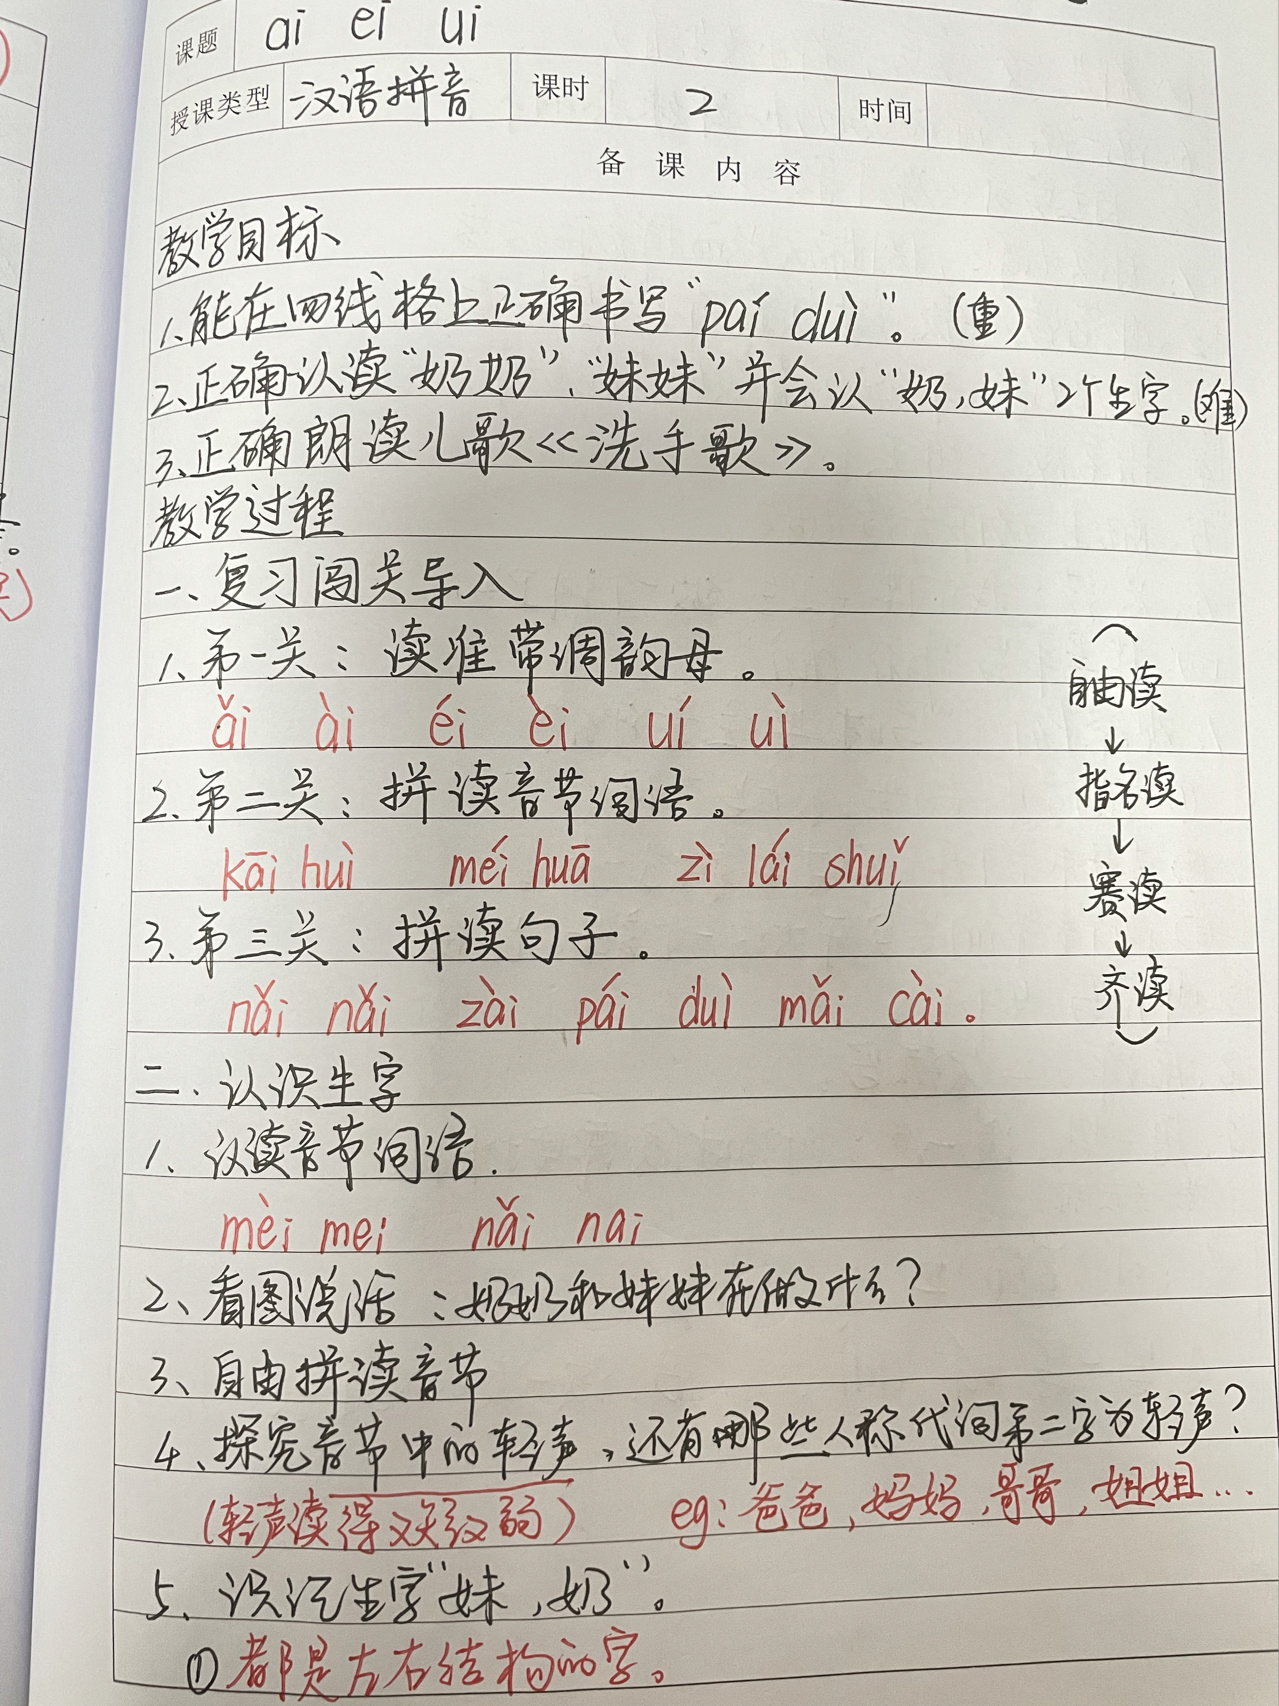 课题 ai ei ui
授课类型 汉语拼音 课时 2 时间
备课内容
教学目标
1、能在四线格上正确书写“pái duì”。(重)
2、正确认读“奶奶”、“妹妹”并会认“奶,妹”2个生字。(难)
3、正确朗读儿歌《洗手歌》。
教学过程
一、复习闯关导入
1、第一关:读准带调韵母。
ǎi ài éi èi uí uì
2、第二关:拼读音节词语。
kāi huì méi huā zì lái shuǐ
3、第三关:拼读句子。
nǎi nǎi zài pái duì mǎi cài。
(自由读
↓
指名读
↓
赛读
↓
齐读)
二、认识生字
1、认读音节词语.
mèi mei nǎi nai
2、看图说话:奶奶和妹妹在做什么?
3、自由拼读音节
4、探究音节中的轻声,还有哪些人称代词第二字为轻声?
(轻声读得又短又弱) eg:爸爸,妈妈,哥哥,姐姐…
5、识记生字“妹,奶”。
①都是左右结构的字。